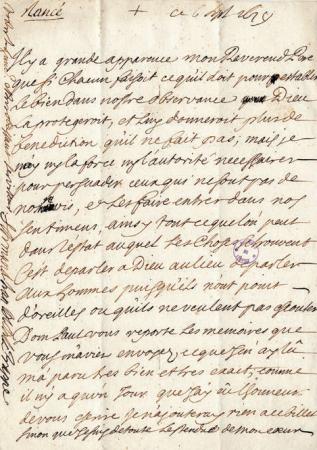 Rancé + ce 6 sept 1678
Il y a grande apparence mon Reverend Pere
que si Chacun faisoit ce qu'il doit pour establir
le bien dans nostre observance Dieu
la protegeroit, et luy donneroit plus de
benediction qu'il ne fait pas, mais je
n'ay ny la force ny l'autorité necessaire
pour persuader ceux qui ne sont pas de
avis, et les faire entrer dans nos
sentimens, ainsy tout ce que l'on peut
dans l'estat auquel les choses se trouvent
c'est de parler a Dieu au lieu de parler
aux hommes puisqu'ils n'ont point
d'oreilles ou qu'ils ne veulent pas escouter
Dom Paul vous reporte les memoires que
vous m'aviez envoyez, ce que j'en ay lû
m'a paru tres bien et tres exact, comme
il n'y a qu'un jour que j'ay eu l'honneur
de vous escrire je n'ajouteray rien a ce billet
sinon que je suis de toute la de mon coeur